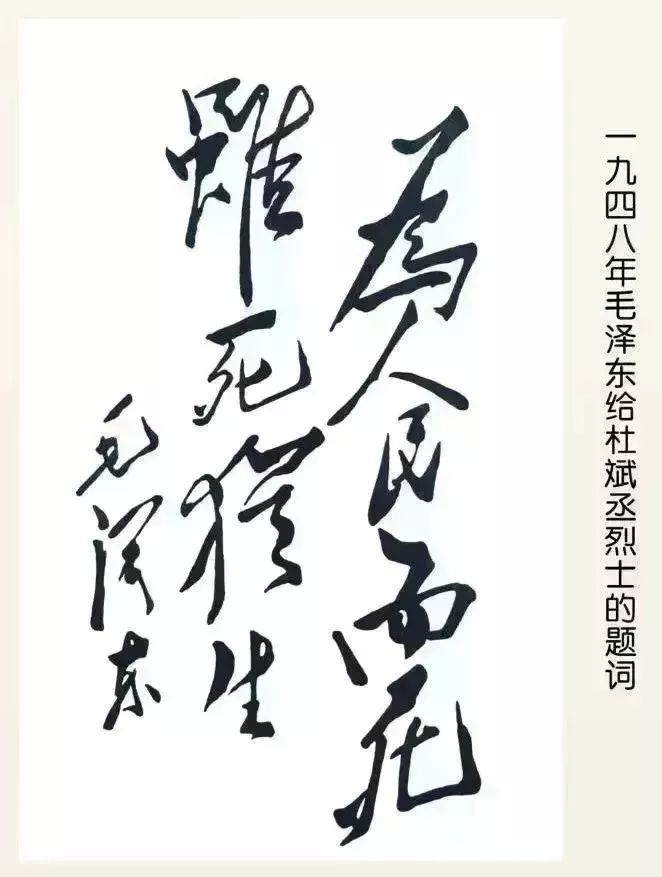 為人民而死
雖死猶生
毛澤東
一九四八年毛泽东给杜斌丞烈士的题词